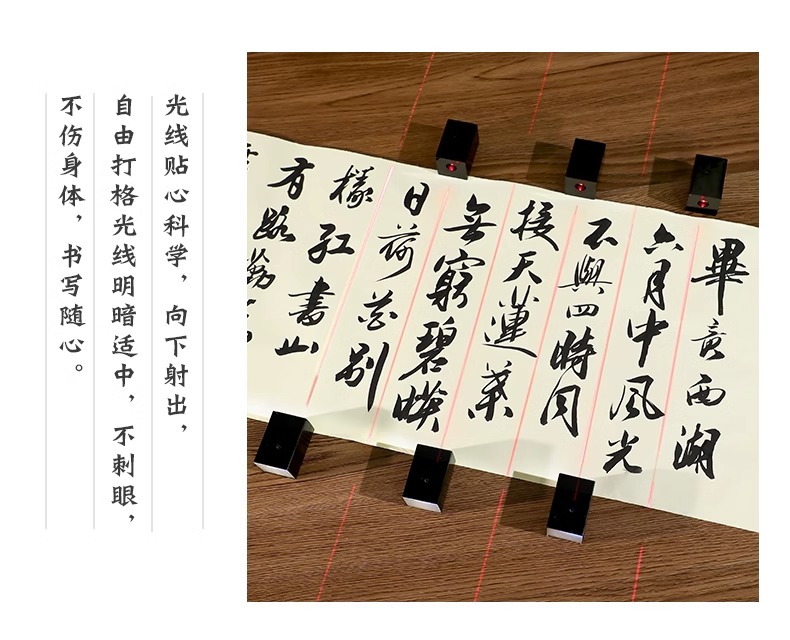 光线贴心科学，向下射出，
自由打格光线明暗适中，不刺眼，
不伤身体，书写随心。
畢竟西湖
六月中風光
不與四時同
接天蓮葉
無窮碧映
日荷花別
樣紅書山
有路勤